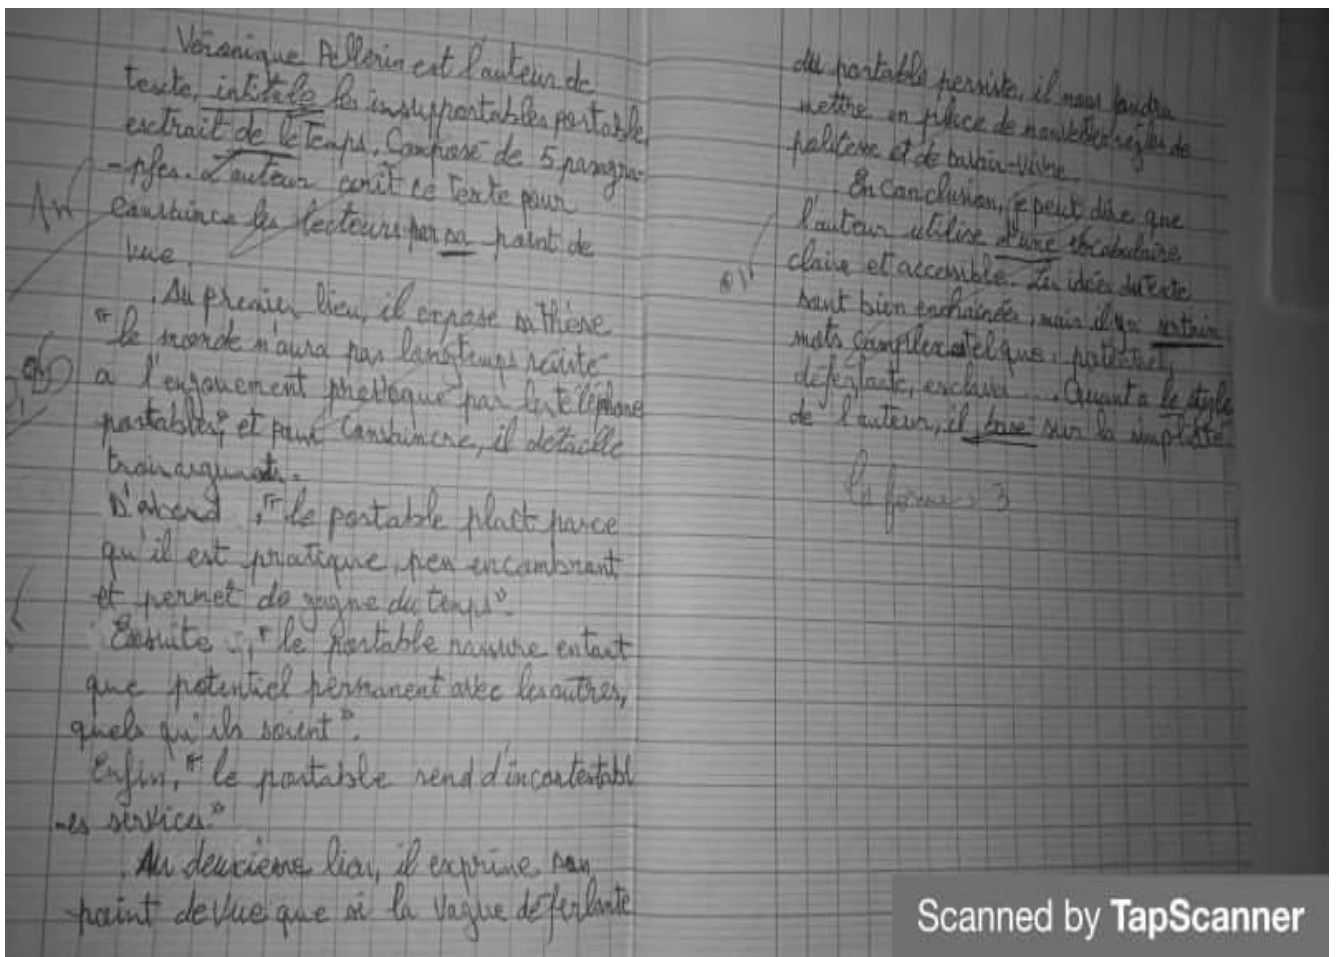 Véronique Pellerin est l'auteur de
texte, intitele les insupportables portable
esctrait de le Temps. Composé de 5 paragra
-pfes. L'auteur écrit ce texte pour
convaince les lecteurs par sa point de
vue.
Au premier lieu, il expose sa thèse
"le monde n'aura pas longtemps résisté
a l'engouement provoqué par les téléphone
portables", et pour convaincre, il détaille
trois arguments.
D'abord, "le portable plaît parce
qu'il est pratique, peu encombrant
et permet de gagne du temps".
Ensuite, "le portable rassure entant
que potentiel permanent avec les autres,
quels qu'ils soient".
Enfin, "le portable rend d'incontestabl
-es services"
Au deuxième lieu, il exprime son
point de vue que si la vague déferlante
du portable persiste, il nous faudra
mettre en place de nouvelles règles de
politesse et de savoir-vivre.
En conclusion, je peut dire que
l'auteur utilise d'une vocabulaire
claire et accessible. Les idées du texte
sont bien enchaînées, mais il ya certain
mots complexe tel que : potentiel,
déferlante, exclusif... Quant a le style
de l'auteur, il base sur la simplisté
La forme : 3
Scanned by TapScanner